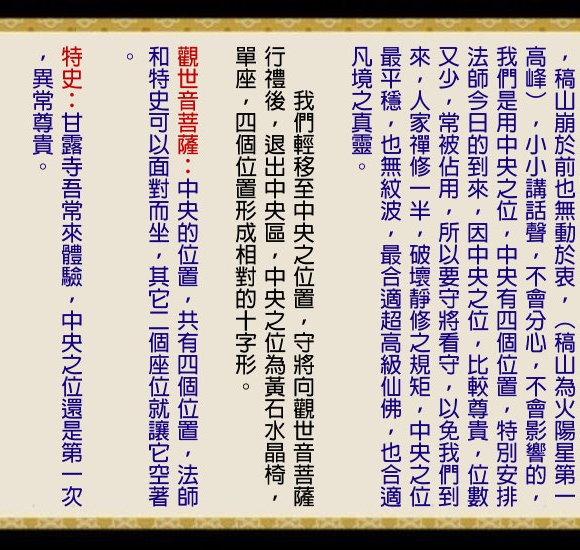 ，稿山崩於前也無動於衷，（稿山為火陽星第一
高峰），小小講話聲，不會分心，不會影響的，
我們是用中央之位，中央有四個位置，特別安排
法師今日的到來，因中央之位，比較尊貴，位數
又少，常被佔用，所以要守將看守，以免我們到
來，人家禪修一半，破壞靜修之規矩，中央之位
最平穩，也無紋波，最合適超高級仙佛，也合適
凡境之真靈。
我們輕移至中央之位置，守將向觀世音菩薩
行禮後，退出中央區，中央之位為黃石水晶椅，
單座，四個位置形成相對的十字形。
觀世音菩薩：中央的位置，共有四個位置，法師
和特史可以面對而坐，其它二個座位就讓它空著
。
特史：甘露寺吾常來體驗，中央之位還是第一次
，異常尊貴。